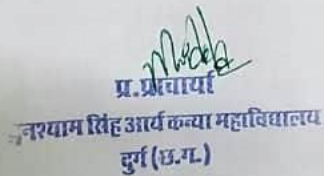 प्र.प्राचार्या
नश्याम सिंह आर्य कन्या महाविद्यालय
दुर्ग (छ.ग.)